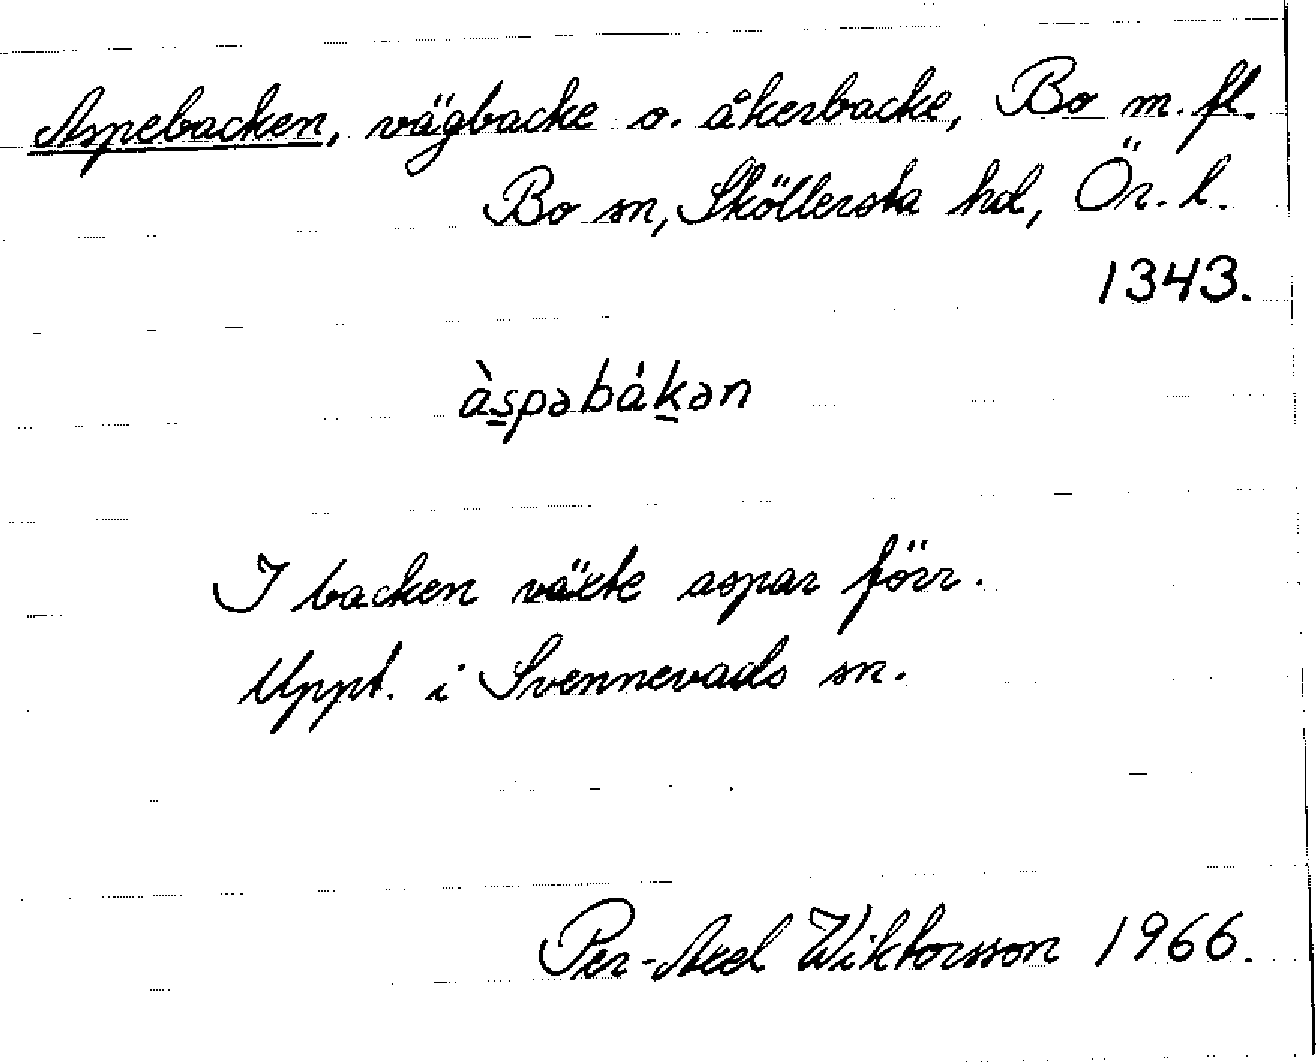 Aspebacken, vägbacke o. åkerbacke, Bo m. fl.
Bo sn, Sköllersta hd, Ör. l.
1343.
àspəbákən
I backen växte aspar förr.
Uppt. i Svennevads sn.
Per-Axel Wiktorsson 1966.